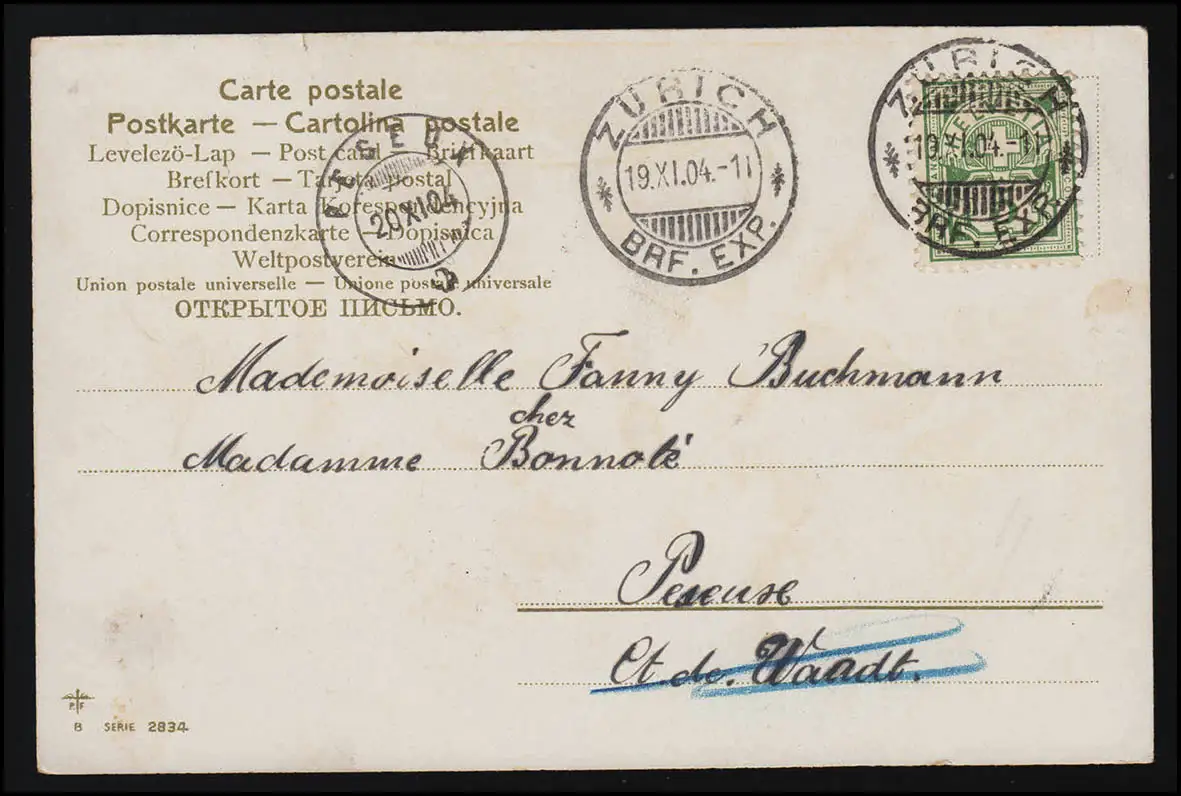 Carte postale
Postkarte — Cartolina postale
Levelezö-Lap — Post card — Briefkaart
Brefkort — Tarjeta postal
Dopisnice — Karta Korespondencyjna
Correspondenzkarte — Dopisnica
Weltpostverein
Union postale universelle — Unione postale universale
ОТКРЫТОЕ ПИСЬМО.
20.XI.04
ZÜRICH
19.XI.04.-11
BRF. EXP.
ZÜRICH
HELVETIA
19.XI.04.-11
BRF. EXP.
Mademoiselle Fanny Buchmann
chez
Madamme Bonnoté
Peseuse
Ct. de. Waadt.
P.F
B SERIE 2834